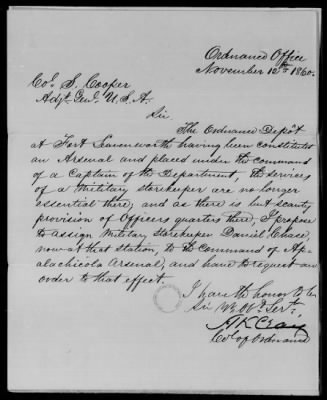 Ordnance Office
November 12th 1860.
Col. S. Cooper
Adjt. Genl. U.S.A.
Sir
The Ordnance Depôt
at Fort Leavenworth having been constituted
an Arsenal and placed under the command
of a Captain of the Department, the services
of a Military storekeeper are no longer
essential there, and as there is but scanty
provision of Officers quarters there, I propose
to assign Military Storekeeper Daniel Chase,
now at that station, to the Command of Ap-
alachicola Arsenal, and have to request an
order to that effect.
I have the honor to be
Sir Yr. Ob. Servt.,
H K Craig
Col. of Ordnance